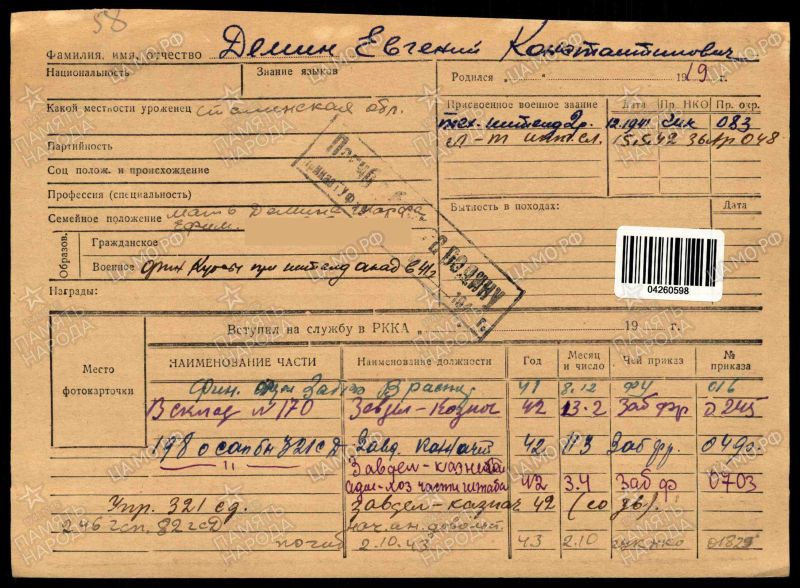 58
Фамилия, имя, отчество Демин Евгений Константинович
Национальность Знание языков Родился „ “ 1919 г.
Какой местности уроженец Сталинская обл.
Присвоенное военное звание Дата Пр. НКО Пр. окр.
тех. интенд 2 р. 12.1941 083
л-т инт. сл. 15.5.42 048
Партийность
Соц полож. и происхождение
Профессия (специальность)
Погиб
Семейное положение мать Демина Ефим.
Бытность в походах: Дата
Образов. Гражданское
Военное фин Курсы при интенд акад в 41 г
Награды:
04260598
Вступил на службу в РККА „ “ 19 г.
Место фотокарточки
НАИМЕНОВАНИЕ ЧАСТИ Наименование должности Год Месяц и число Чей приказ № приказа
Фин. В расп. 41 8.12 ФУ 016
В склад № 170 Завдел-Казнач 42 13.2 Заб фр 0245
198 осапбн 321 сд Завд. Казнач 42 11 3 Заб фр.
—"— Завдел-казнач
адм-хоз части штаба 42 3.4 Заб ф 0703
Упр. 321 сд. завдел-казнач 42 (со дв).
246 гсп. 82 гсд нач. ан. довол.
погиб 2.10.43 43 2.10 01829
ПАМЯТЬ НАРОДА
ЦАМО.РФ